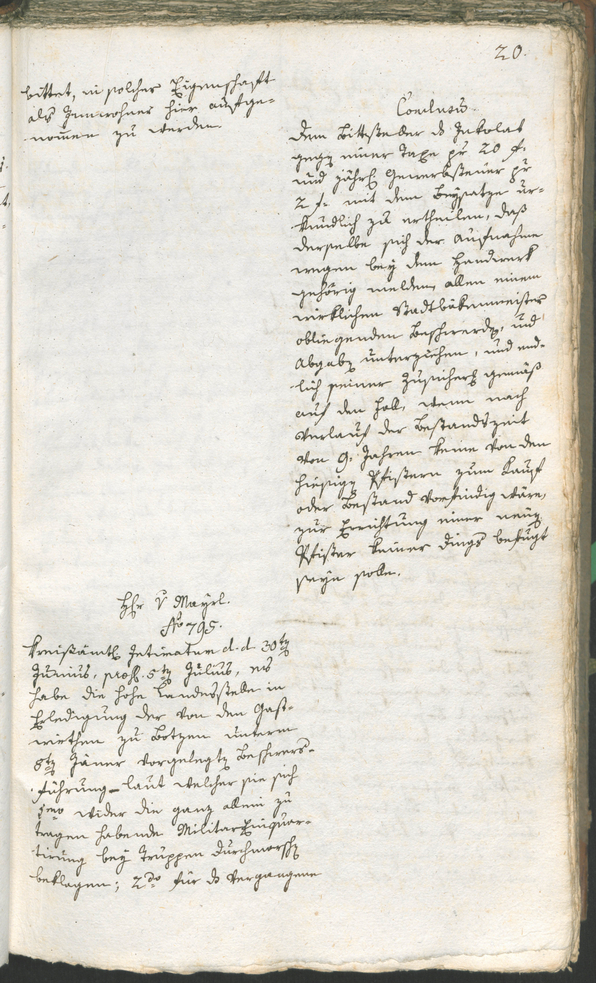 20.
bittet, in solcher Eigenschaft
als Innwohner hier aufge-
nom̄en zu werden.
Conclusum.
Dem Bittsteller ds Inkolat
gegen einer Taxe pr 20 f.
und jährl. Gewerbsteuer pr
2 f. mit dem Beysatze ur-
kundlich zu ertheilen, daß
derselbe sich der Aufnahme
wegen bey dem Handwerk
gehörig melden, allen einem
wirklichen Stadtbäkenmeister
obliegenden Beschwerden, und
Abgaben unterziehen, und end-
lich seiner Zusicherg gemäß
auf den Fall, wenn nach
Verlauf der Bestandszeit
von 9. Jahren keine von den
hiesigen Pfistern zum Kauf
oder Bestand vorfindig wäre,
zur Errichtung einer neuen
Pfister keiner Dings befugt
seyn solle.
Hr v Mayrl.
No 795.
Kreisämtl. Intimatum d. d. 30ten
Junius, præs. 5ten Julius, es
habe die hohe Landesstelle in
Erledigung der von den Gast-
wirthen zu Botzen unterm
5ten Jäner vorgelegten Beschwers-
führung – laut welcher sie sich
1mo wider die ganz allein zu
tragen habende Militar Einquar-
tirung bey Truppen Durchmarsch
beklagen; 2do für ds vergangene